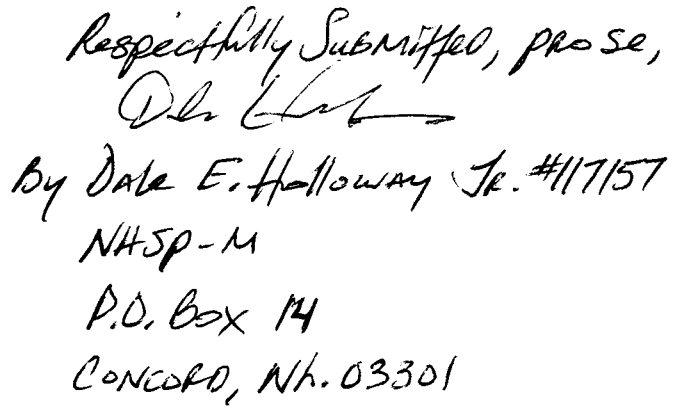 Respectfully Submitted, pro se,
By Dale E. Holloway Jr. #117157
NHSP-M
P.O. Box 14
Concord, Nh. 03301